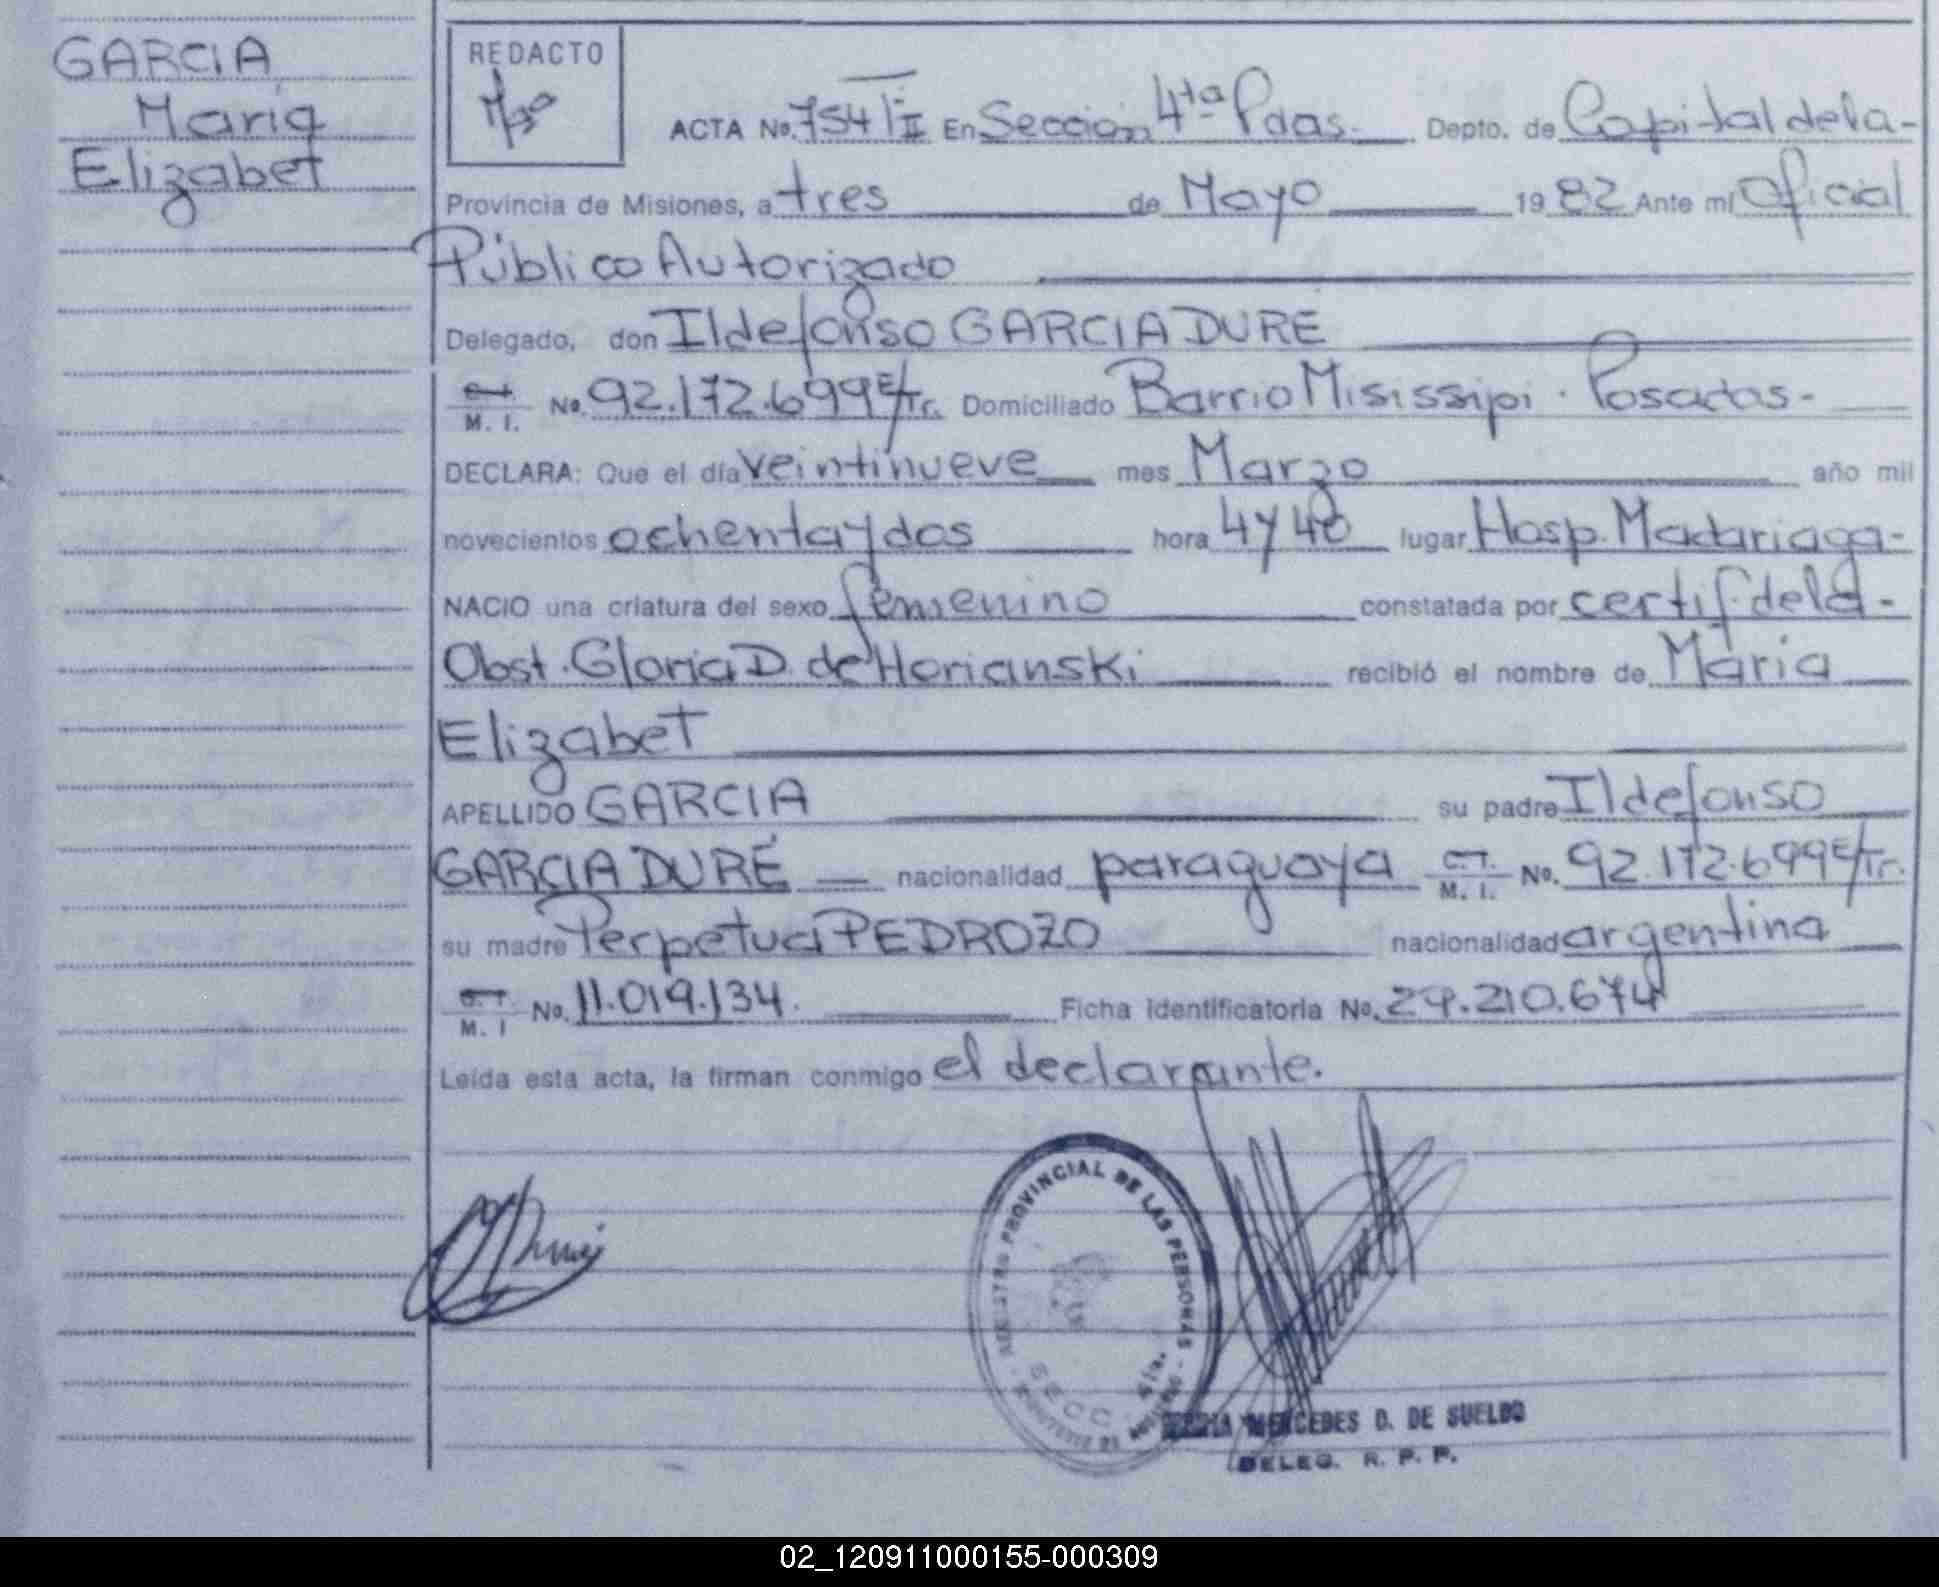 GARCIA
Maria
Elizabet
REDACTO
ACTA No. 754/II En Sección 4ta Pdas. Depto. de Capital de la-
Provincia de Misiones, a tres de Mayo 1982 Ante mí Oficial
Público Autorizado
Delegado, don Ildefonso GARCIA DURÉ
C.I. M. I. No. 92.172.699 E/Tr. Domiciliado Barrio Misissipi. Posadas-
DECLARA: Que el día veintinueve mes Marzo año mil
novecientos ochenta y dos hora 4 y 40 lugar Hosp. Madariaga-
NACIO una criatura del sexo femenino constatada por certif. de la-
Obst. Gloria D. de Horianski recibió el nombre de María
Elizabet
APELLIDO GARCIA su padre Ildefonso
GARCIA DURÉ nacionalidad paraguaya C.I. M. I. No. 92.172.699 E/Tr.
su madre Perpetua PEDROZO nacionalidad argentina
C.I. M. I No. 11.019.134. Ficha identificatoria No. 29.210.674
Leída esta acta, la firman conmigo el declarante.
PROVINCIAL DE LAS PERSONAS
SECC. 4ta.
MERCEDES D. DE SUELDO
DELEG. R. P. P.
02_120911000155-000309